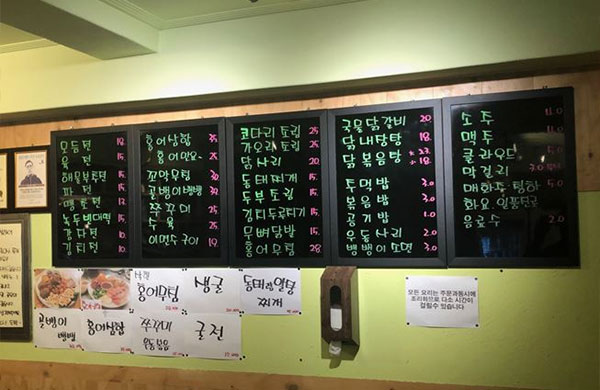 모듬전 18
육전 15.
해물부추전 15.
파전 15.
명태전 15.
녹두빈대떡 15.
감자전 10
김치전 10
홍어삼합 35
홍어찜 35.
꼬막무침 25.
골뱅이뱅뱅 35.
쭈꾸미 25
수육 25.
이면수구이 19
코다리조림 25
가오리조림 25.
닭사리 25.
동태찌개 25.
두부조림 15.
김치두루치기 15
무뼈닭발 15.
홍어무침 28
국물닭갈비 20
닭내장탕 18.
닭볶음탕 * 23.
주먹밥 3.0
볶음밥 2.0
공기밥 1.0
우동사리 2.0
뱅뱅이소면 3.0
소주
맥주
클라우드 5.0
막걸리 3.0
매화수 청하 5.0
화요 일품진로
음료수 2.0
홍어무침
생굴
동태알탕
찌개
골뱅이
뱅뱅
홍어삼합
쭈꾸미
우동볶음
굴전
모든 요리는 주문과동시에
조리하므로 다소 시간이
걸릴수 있습니다